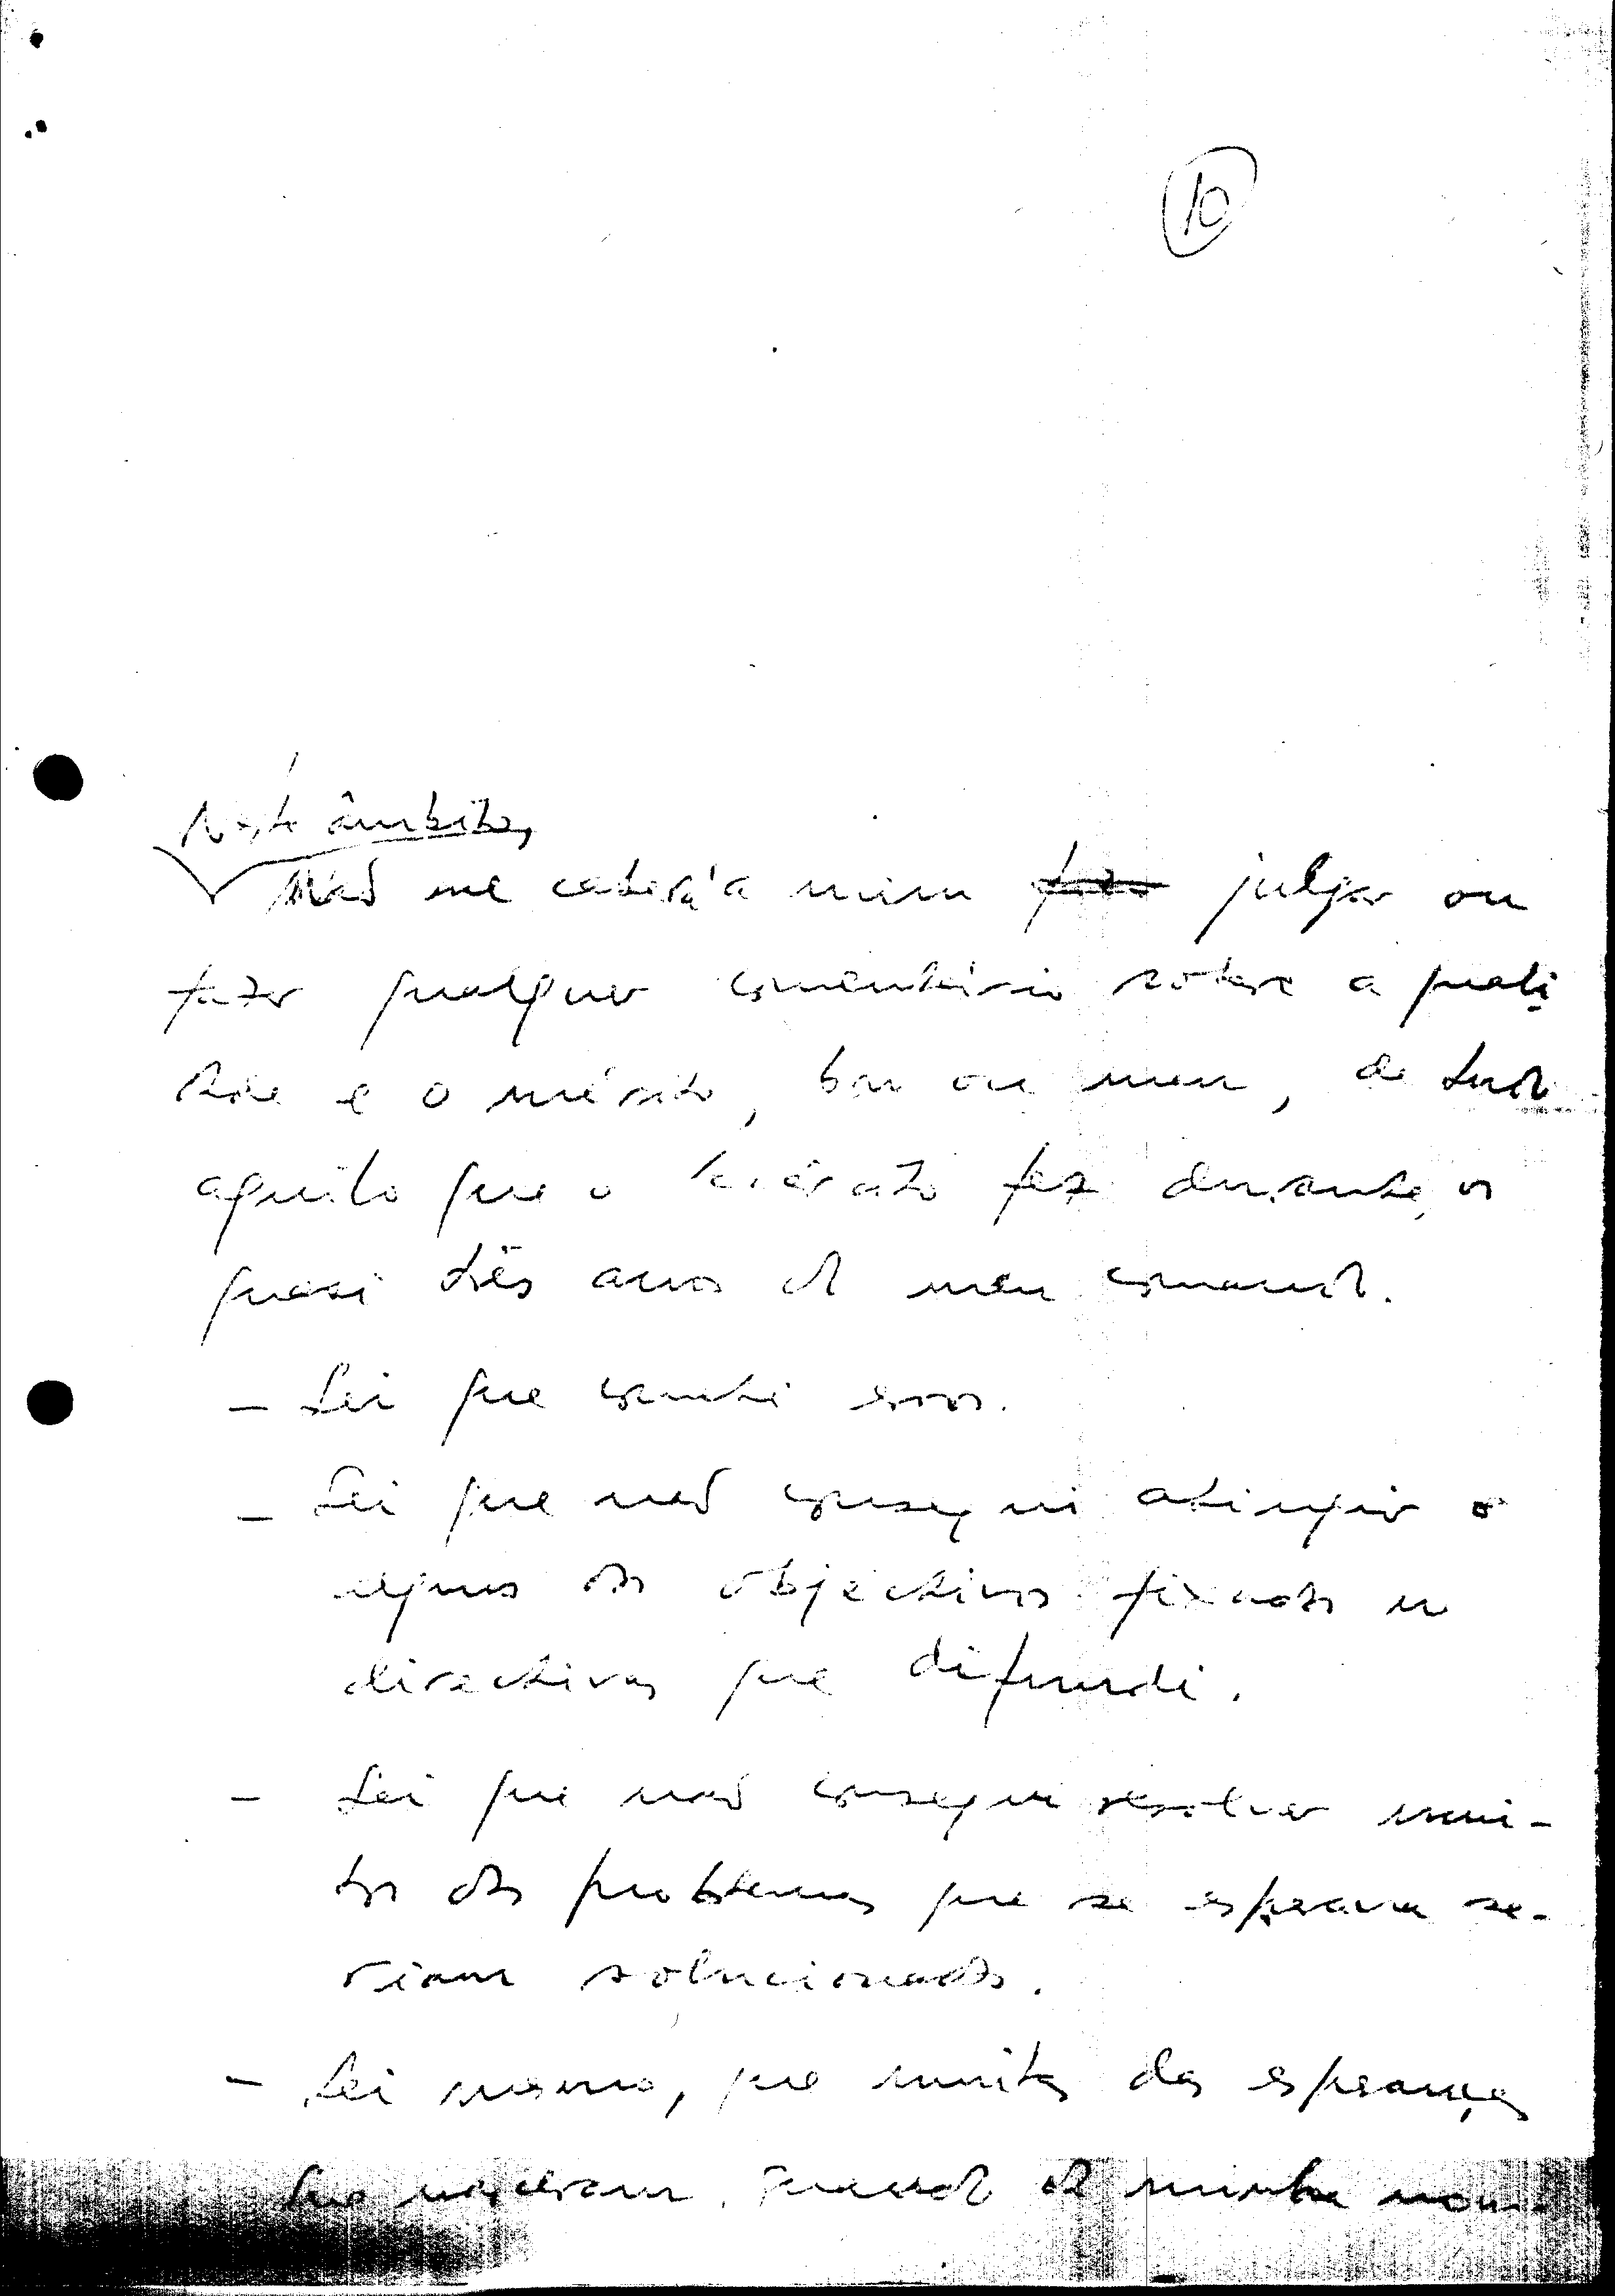 10
Neste âmbito,
Não me caberá a mim julgar ou
fazer qualquer comentário sobre a quali
dade e o mérito, bom ou mau, de tudo
aquilo que o Exército fez durante os
quasi três anos do meu comando.
- Sei que cometi erros.
- Sei que não consegui atingir
alguns dos objectivos fixados
directivas que difundi.
- Sei que não consegui resolver mui-
tos dos problemas que se esperava se-
riam solucionados.
- Sei mesmo, que muitas das esperanças
que nasceram quando da minha nom-